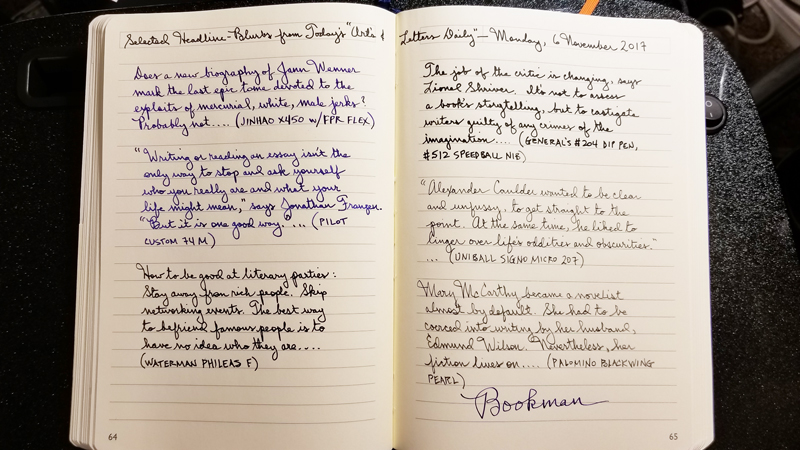 Selected Headline-Blurbs from Today's "Arts & Letters Daily" — Monday, 6 November 2017
Does a new biography of Jann Wenner
mark the last epic tome devoted to the
exploits of mercurial, white, male jerks?
Probably not.... (JINHAO X450 W/FPR FLEX)
"Writing or reading an essay isn't the
only way to stop and ask yourself
who you really are and what your
life might mean," says Jonathan Franzen.
"But it is one good way." ... (PILOT
CUSTOM 74 M)
How to be good at literary parties:
Stay away from rich people. Skip
networking events. The best way
to befriend famous people is to
have no idea who they are....
(WATERMAN PHILEAS F)
64
The job of the critic is changing, says
Lionel Shriver. It's not to assess
a book's storytelling, but to castigate
writers guilty of any crimes of the
imagination.... (GENERAL'S #204 DIP PEN,
#512 SPEEDBALL NIB)
"Alexander Caulder wanted to be clear
and unfussy, to get straight to the
point. At the same time, he liked to
linger over life's oddities and obscurities."
... (UNIBALL SIGNO MICRO 207)
Mary McCarthy became a novelist
almost by default. She had to be
coerced into writing by her husband,
Edmund Wilson. Nevertheless, her
fiction lives on.... (PALOMINO BLACKWING
PEARL)
Bookman
65